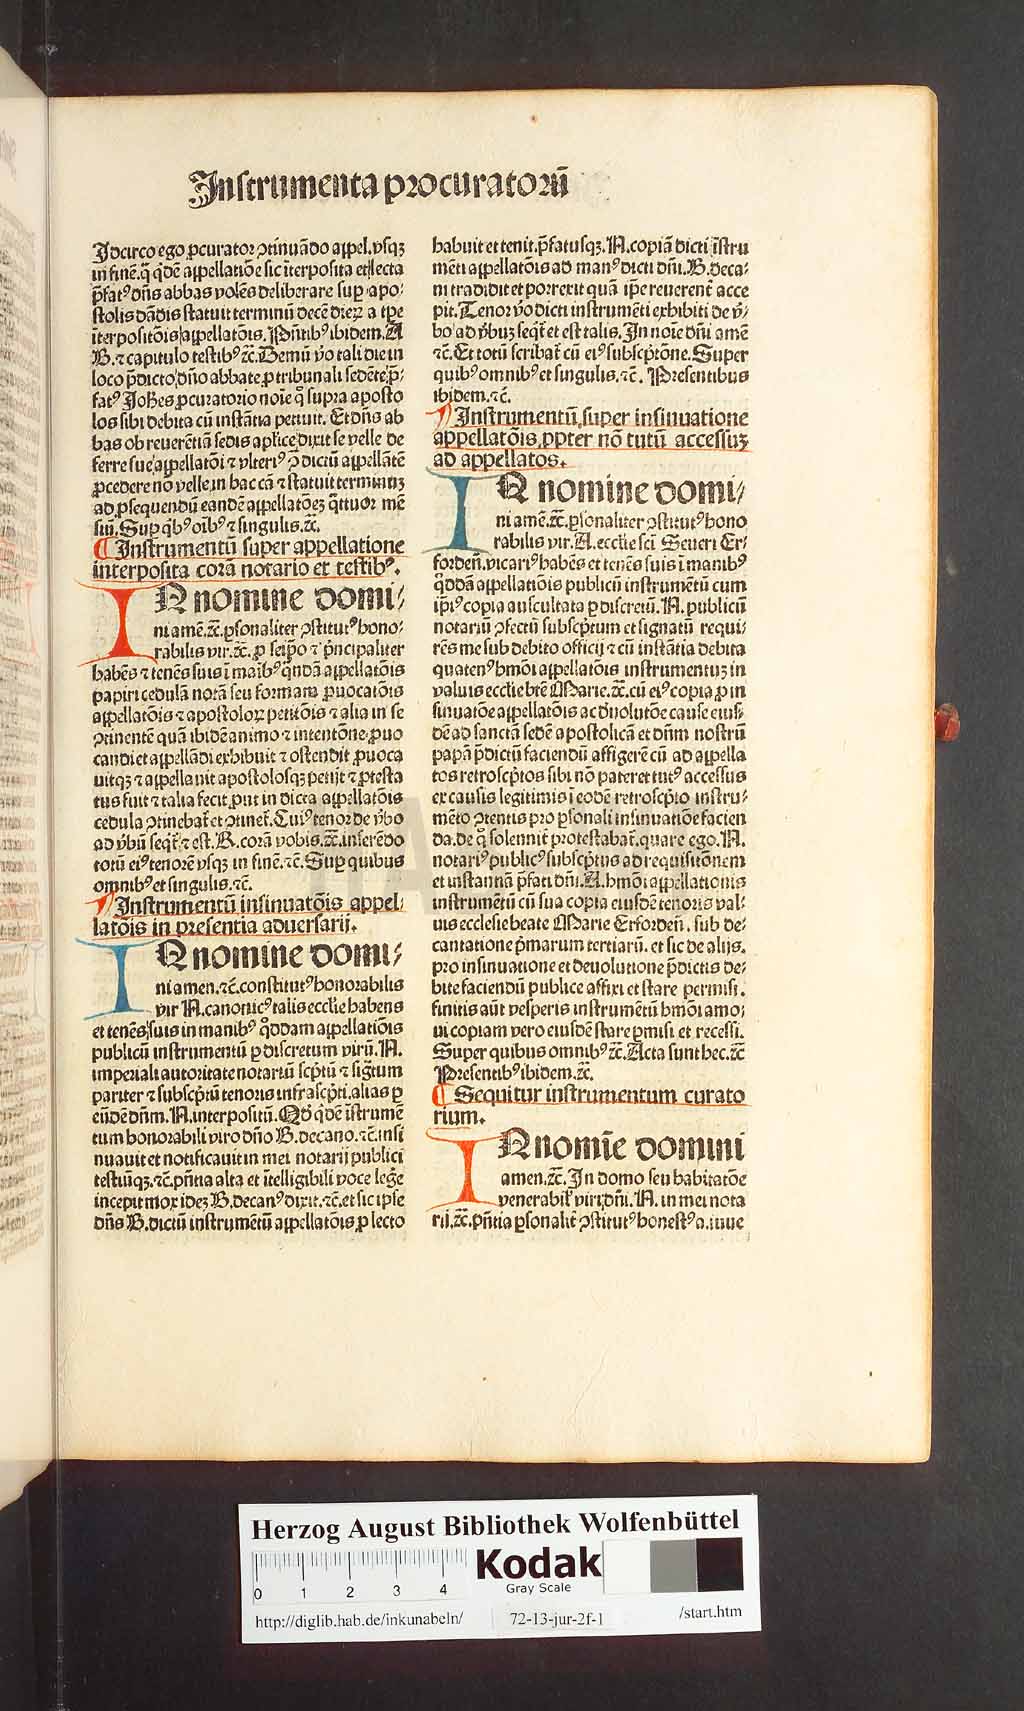 Instrumenta procuratoꝝ̄
Idcirco ego ꝓcurator ꝯtinuādo aꝑpel. vsqꝫ
in finē. q̄ q̇dē appellatiōe sic īterposita et lecta
p̄fatꝰ dn̄s abbas volēs deliberare suꝑ apo⸗
stolis dādis statuit terminū decē dieꝝ a tꝑe
īterpositōis appellatōis. Pn̄tibꝰ ibidem. A
B. ⁊ capitulo testibꝰ ⁊c̄. Demū v̓o tali die in
loco p̄dicto dn̄o abbate ꝓ tribunali sedēte p̄⸗
fatꝰ Joh̄es ꝓcuratorio noīe q̊ supra aposto
los sibi debita cū instātia petiuit. Et dn̄s ab
bas ob reuerētiā sedis aplice dixit se velle de
ferre sue appellatōi ⁊ vlteriꝰ ꝯ̄ dictū appellātē
ꝓcedere nō velle in hac cā ⁊ statuit terminuꝫ
ad ꝓsequendū eandē appellatōeꝫ q̄ttuor mē
siū. Suꝑ q̇bꝰ oībꝰ ⁊ singulis. ⁊c̄.
¶ Instrumentū super appellatione
interposita corā notario et testibꝰ.
IN nomine domi⸗
ni amē. ⁊c̄. ꝑsonaliter ꝯstitutꝰ hono⸗
rabilis vir. ⁊c̄. ꝓ seip̄o ⁊ p̄ncipaliter
habēs ⁊ tenēs suis ī maībꝰ q̄ndā appellatōis
papiri cedulā notā seu formam ꝓuocatōis
appellatōis ⁊ apostoloꝝ petitōis ⁊ alia in se
ꝯtinentē quā ibidē animo ⁊ intentōne ꝓuo
candi et appellādi exhibuit ⁊ ostendit ꝓuoca
uitqꝫ ⁊ appellauit apostolosqꝫ petijt ⁊ ꝓtesta
tus fuit ⁊ talia fecit ꝓut in dicta appellatōis
cedula ꝯtinebat̄ et ꝯtinet̄. Cuiꝰ tenor de v̓bo
ad v̓bū seqt̄ ⁊ est. B. corā vobis. ⁊c̄. inserēdo
totū eiꝰ tenorē vsqꝫ in finē. ⁊c̄. Suꝑ quibus
omnibꝰ et singulis. ⁊c̄.
¶ Instrumentū insinuatōis appel⸗
latōis in presentia aduersarij.
IN nomine domi⸗
ni amen. ⁊c̄. constitutꝰ honorabilis
vir N. canonicꝰ talis ecclie habens
et tenēs suis in manibꝰ q̊ddam appellatiōis
publicū instrumentū ꝑ discretum virū. N.
imperiali autoritate notariū sc̄ptū ⁊ siḡtum
pariter ⁊ subscp̄tū tenoris infrascp̄ti. alias ꝑ
eūdē dn̄m. N. interpositū. Qd̓ q̇dē īstrumē
tum honorabili viro dn̄o B. decano. ⁊c̄. insi
nuauit et notificauit in mei notarij publici
testiūqꝫ. ⁊c̄. pn̄tia alta et ītelligibili voce leḡe
incepit mox ideꝫ B. decanꝰ dixit. ⁊c̄. et sic ipse
dn̄s B. dictū instrumētū appellatōis ꝓ lecto
habuit et tenit. p̄fatusqꝫ. N. copiā dicti īstru
mēti appellatōis ad manꝰ dicti dn̄i. B. deca⸗
ni tradidit et porrexit quā ip̄e reuerent̄ acce
pit. Tenor v̓o dicti instrumēti exhibiti de v̓⸗
bo ad v̓buꝫ seqt̄ et est talis. In noīe dn̄i amē
⁊c̄. Et totū scribat̄ cū eiꝰ subscp̄tōne. Super
quibꝰ omnibꝰ et singulis. ⁊c̄. Presentibus
ibidem. ⁊c̄.
¶ Instrumentū super insinuatione
appellatōis ꝓpter nō tutū accessuꝫ
ad appellatos.
IN nomine domi⸗
ni amē. ⁊c̄. ꝑsonaliter ꝯstitutꝰ hono
rabilis vir. A. ecclie sci̓ Seueri Er⸗
forden̄. vicariꝰ habēs et tenēs suis ī manibꝰ
q̊ddā appellatiōis publicū instrumētū cum
ip̄iꝰ copia auscultata ꝑ discretū. N. publicū
notariū ꝯfectū subscp̄tum et signatū requi⸗
rēs me sub debito officij ⁊ cū instātia debita
quatenꝰ hmōi appellatōis instrumentuꝫ in
valuis ecclie btē Marie. ⁊c̄. cū eiꝰ copia ꝓ in
sinuatōe appellatōis ac d̓uolutōe cause eius⸗
dē ad sanctā sedē apostolicā et dn̄m nostrū
papā p̄dictū faciendū affigerē cū ad appella
tos retroscp̄tos sibi nō pateret tutꝰ accessus
ex causis legitimis ī eodē retroscp̄to instru⸗
mēto ꝯtentis pro ꝑsonali insinuatiōe facien
da. de q̊ solennit̄ protestabat̄. quare ego. N.
notariꝰ publicꝰ subscp̄tus ad requisitōnem
et instantiā p̄fati dn̄i. A. hmōi appellationis
instrumētū cū sua copia eiusdē tenoris val⸗
uis ecclesie beate Marie Erforden̄. sub de⸗
cantatione p̄marum tertiarū. et sic de alijs.
pro insinuatione et deuolutione p̄dictis de⸗
bite faciendū publice affixi et stare permisi.
finitis aūt vesperis instrumētū hmōi amo⸗
ui copiam vero eiusdē stare ꝑmisi et recessi.
Super quibus omnibꝰ ⁊c̄. Acta sunt hec. ⁊c̄
Presentibꝰ ibidem. ⁊c̄.
¶ Sequitur instrumentum curato
rium.
IN nomīe domini
amen. ⁊c̄. In domo seu habitatōe
venerabil̓ viri dn̄i. N. in mei nota
rij. ⁊c̄. pn̄tia ꝑsonalit̄ ꝯstitutꝰ honestꝰ a. iuue
Herzog August Bibliothek Wolfenbüttel
0 1 2 3 4
Kodak
Gray Scale
http://diglib.hab.de/inkunabeln/ 72-13-jur-2f-1 /start.htm